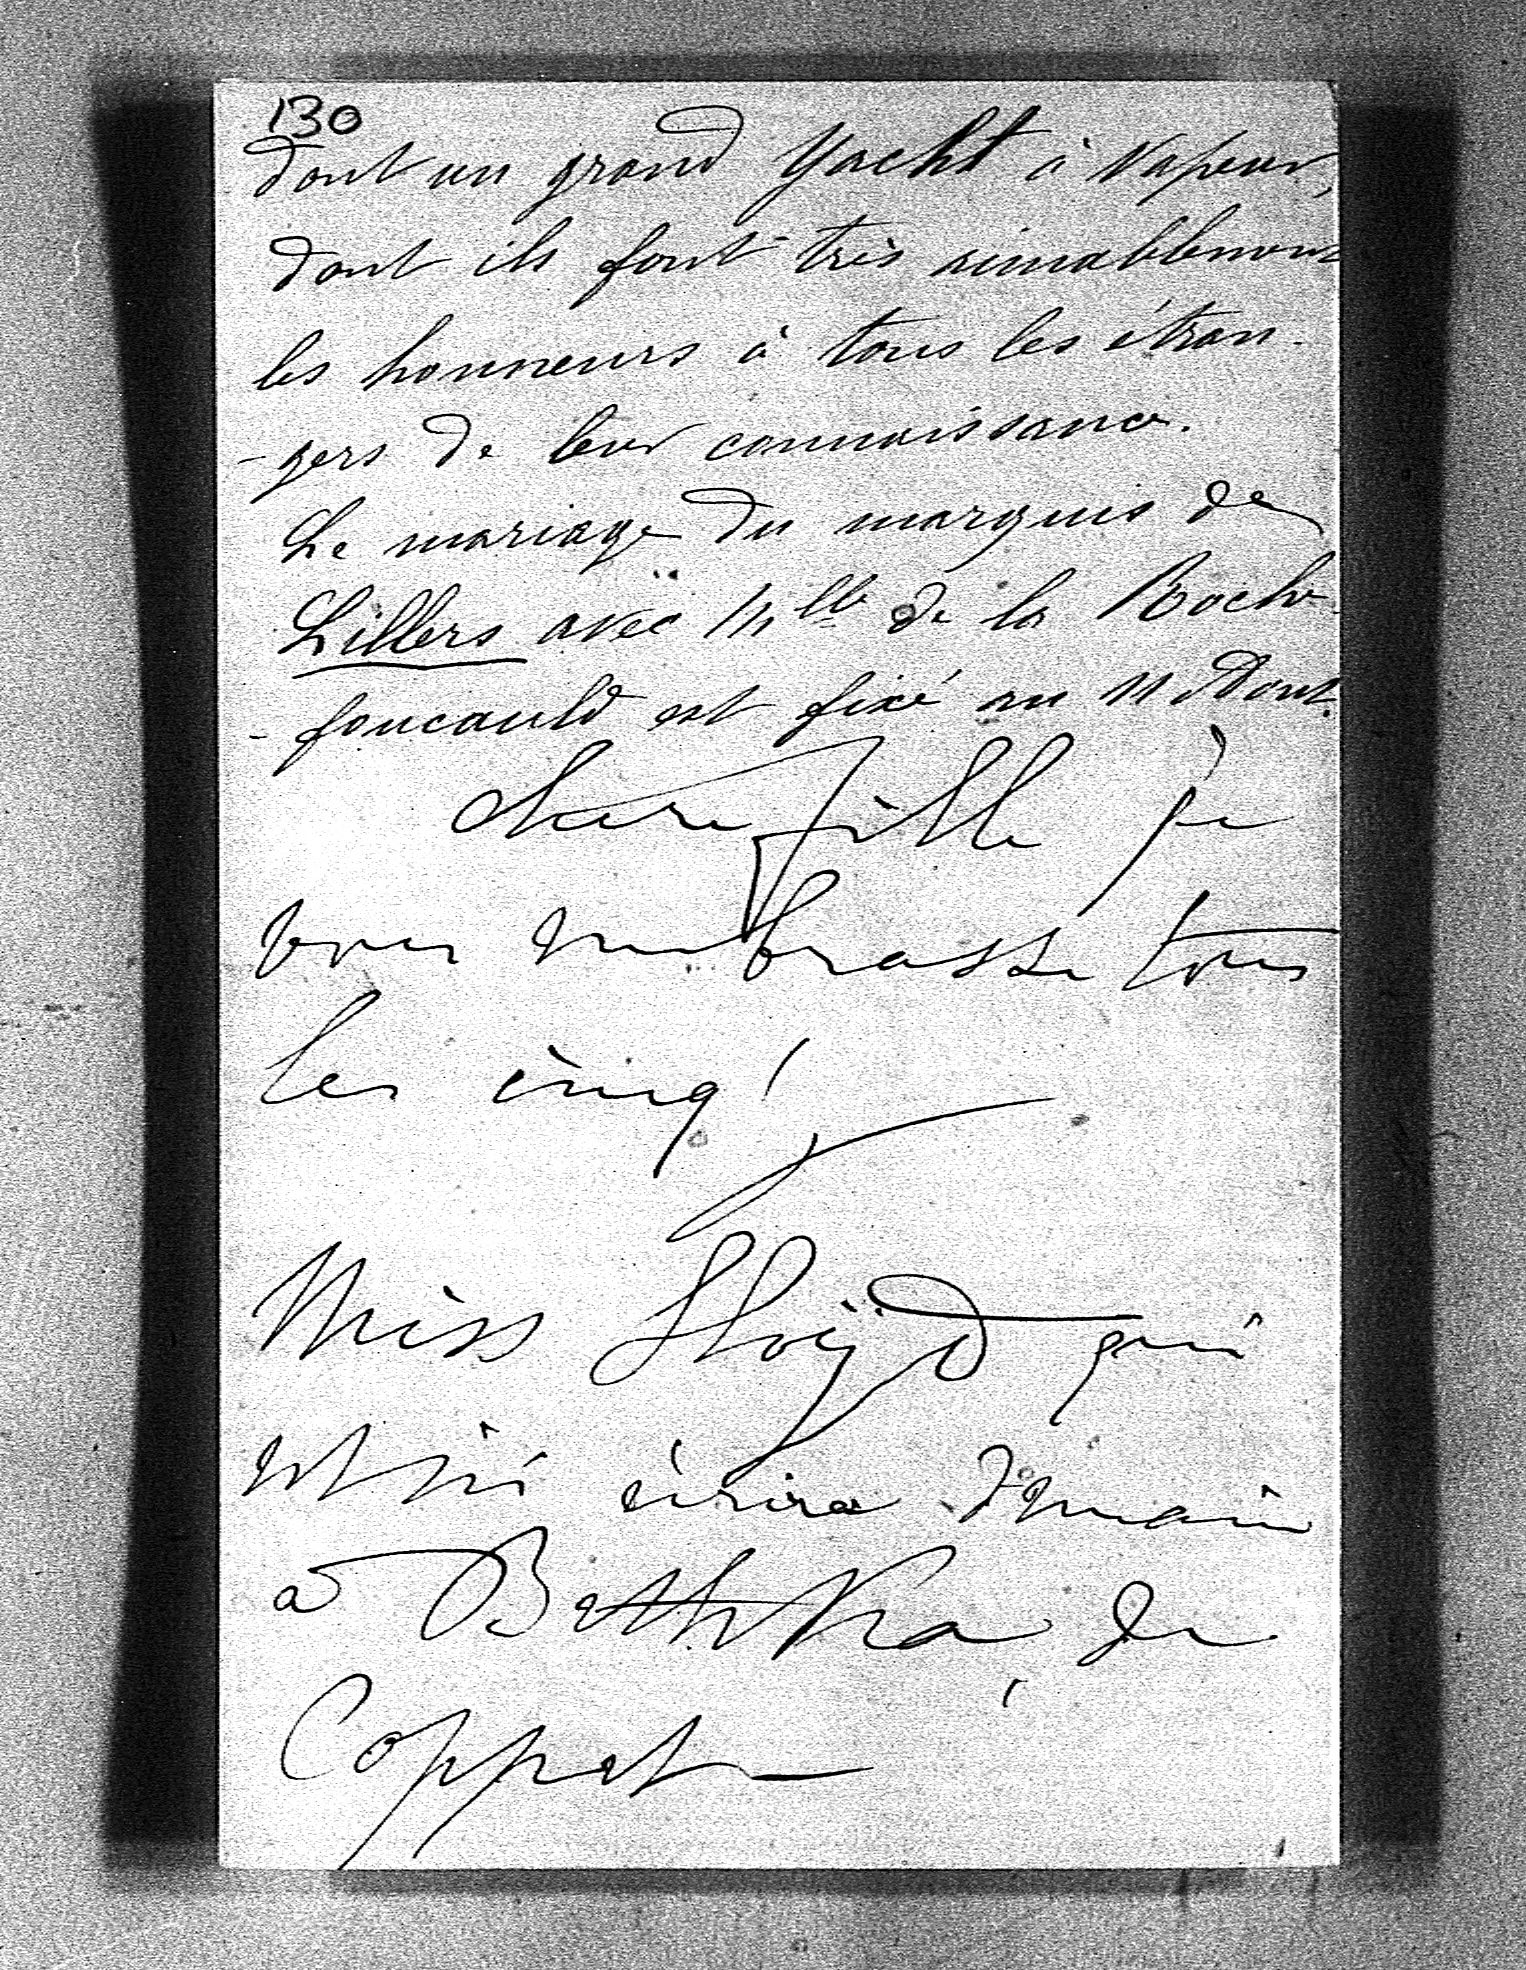 130
dont un grand Yacht à vapeur,
dont ils font très aimablement
les honneurs à tous les étran-
-gers de leur connaissance.
Le mariage du marquis de
Lillers avec Mlle de la Roche-
-foucauld est fixé au 11 Aout.
chere fille je
vous embrasse tous
les cinq!
Miss Lloÿd qui
est ici écrira demain
à de
Coppet